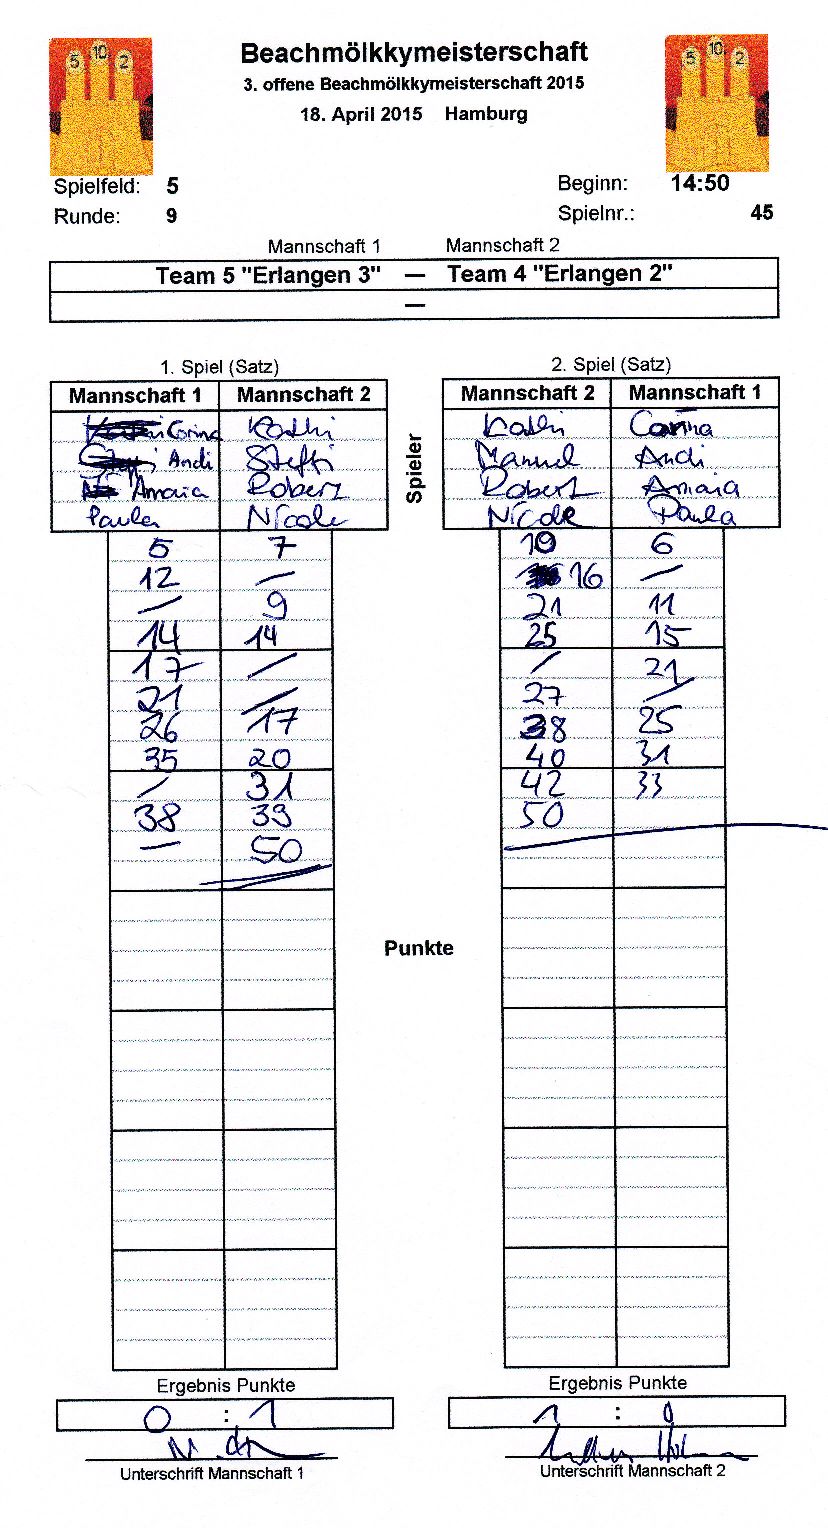 5 10 2 Beachmölkkymeisterschaft 5 10 2
3. offene Beachmölkkymeisterschaft 2015
18. April 2015 Hamburg
Spielfeld: 5 Beginn: 14:50
Runde: 9 Spielnr.: 45
Mannschaft 1 Mannschaft 2
Team 5 "Erlangen 3" — Team 4 "Erlangen 2"
—
1. Spiel (Satz) 2. Spiel (Satz)
Mannschaft 1 Mannschaft 2 Mannschaft 2 Mannschaft 1
Corina Kathi Kathi Corina
Andi Steffi Manuel Andi
Amaia Robert Robert Amaia
Paula Nicole Nicole Paula
Spieler
5 7 10 6
12 — 16 —
— 9 21 11
14 14 25 15
17 / / 21
21 / 27 /
26 17 38 25
35 20 40 31
/ 31 42 33
38 33 50
— 50
Punkte
Ergebnis Punkte Ergebnis Punkte
0 : 1 1 : 0
Unterschrift Mannschaft 1 Unterschrift Mannschaft 2